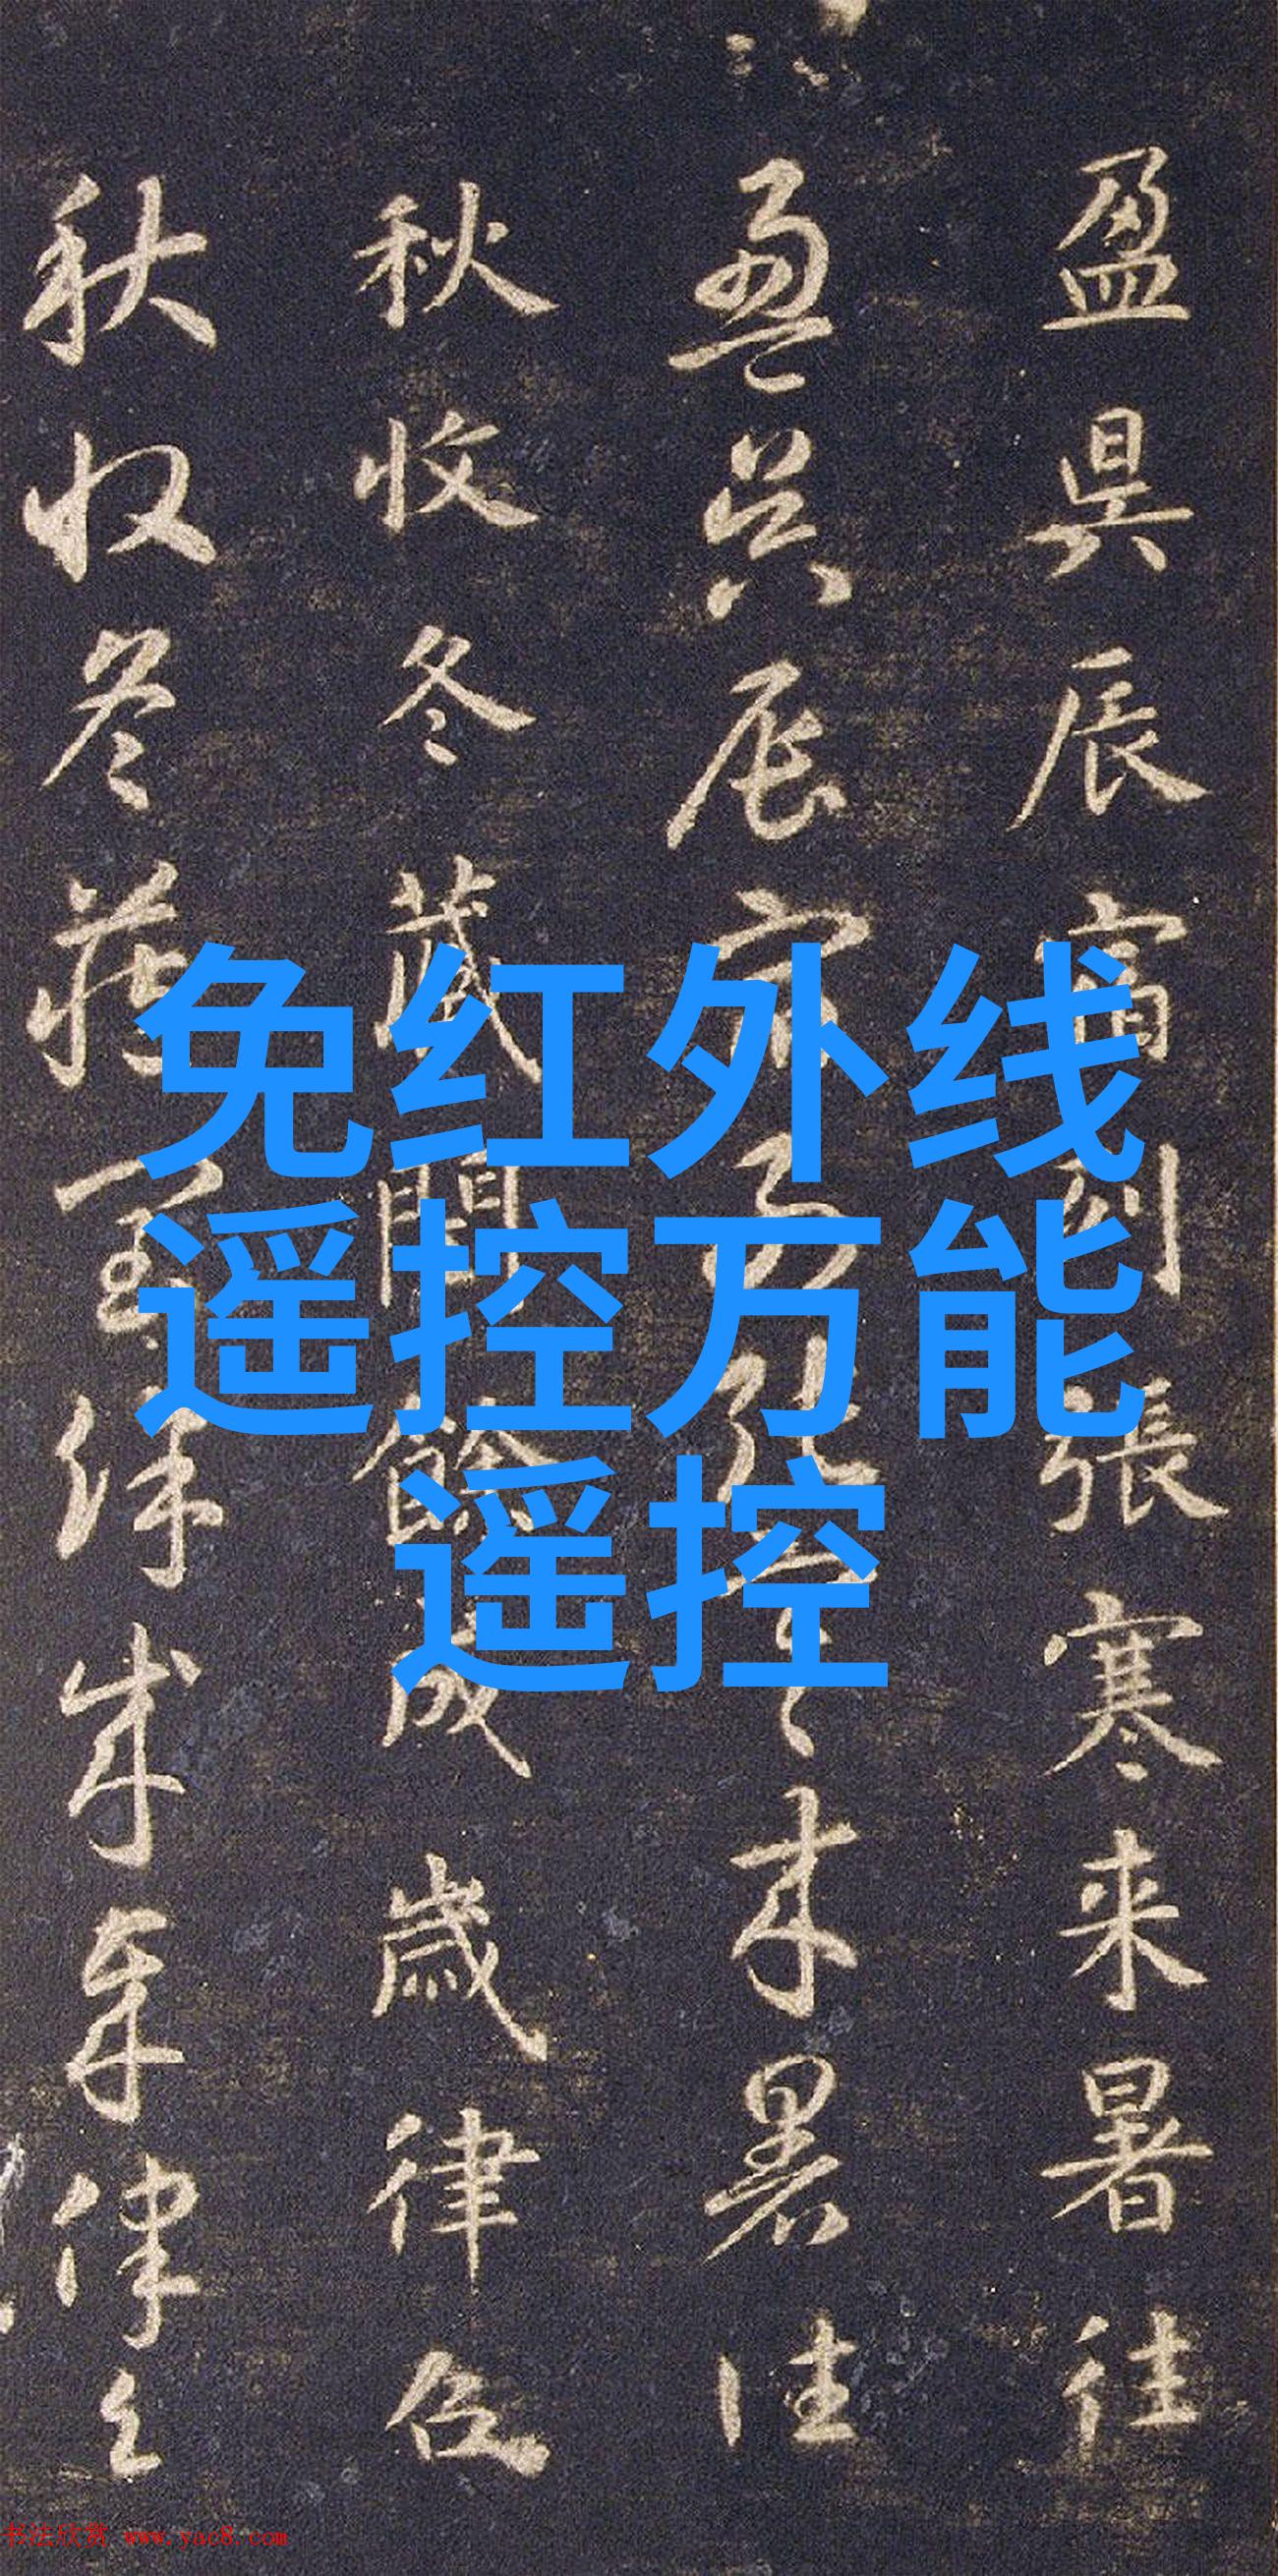 盈昃辰宿列張寒来暑往
盈昃辰宿列張寒来暑往
秋收冬藏閏餘成歲律呂
秋收冬藏閏餘成歲律呂
免红外线
遥控万能
遥控
书法欣赏 www.yac8.com